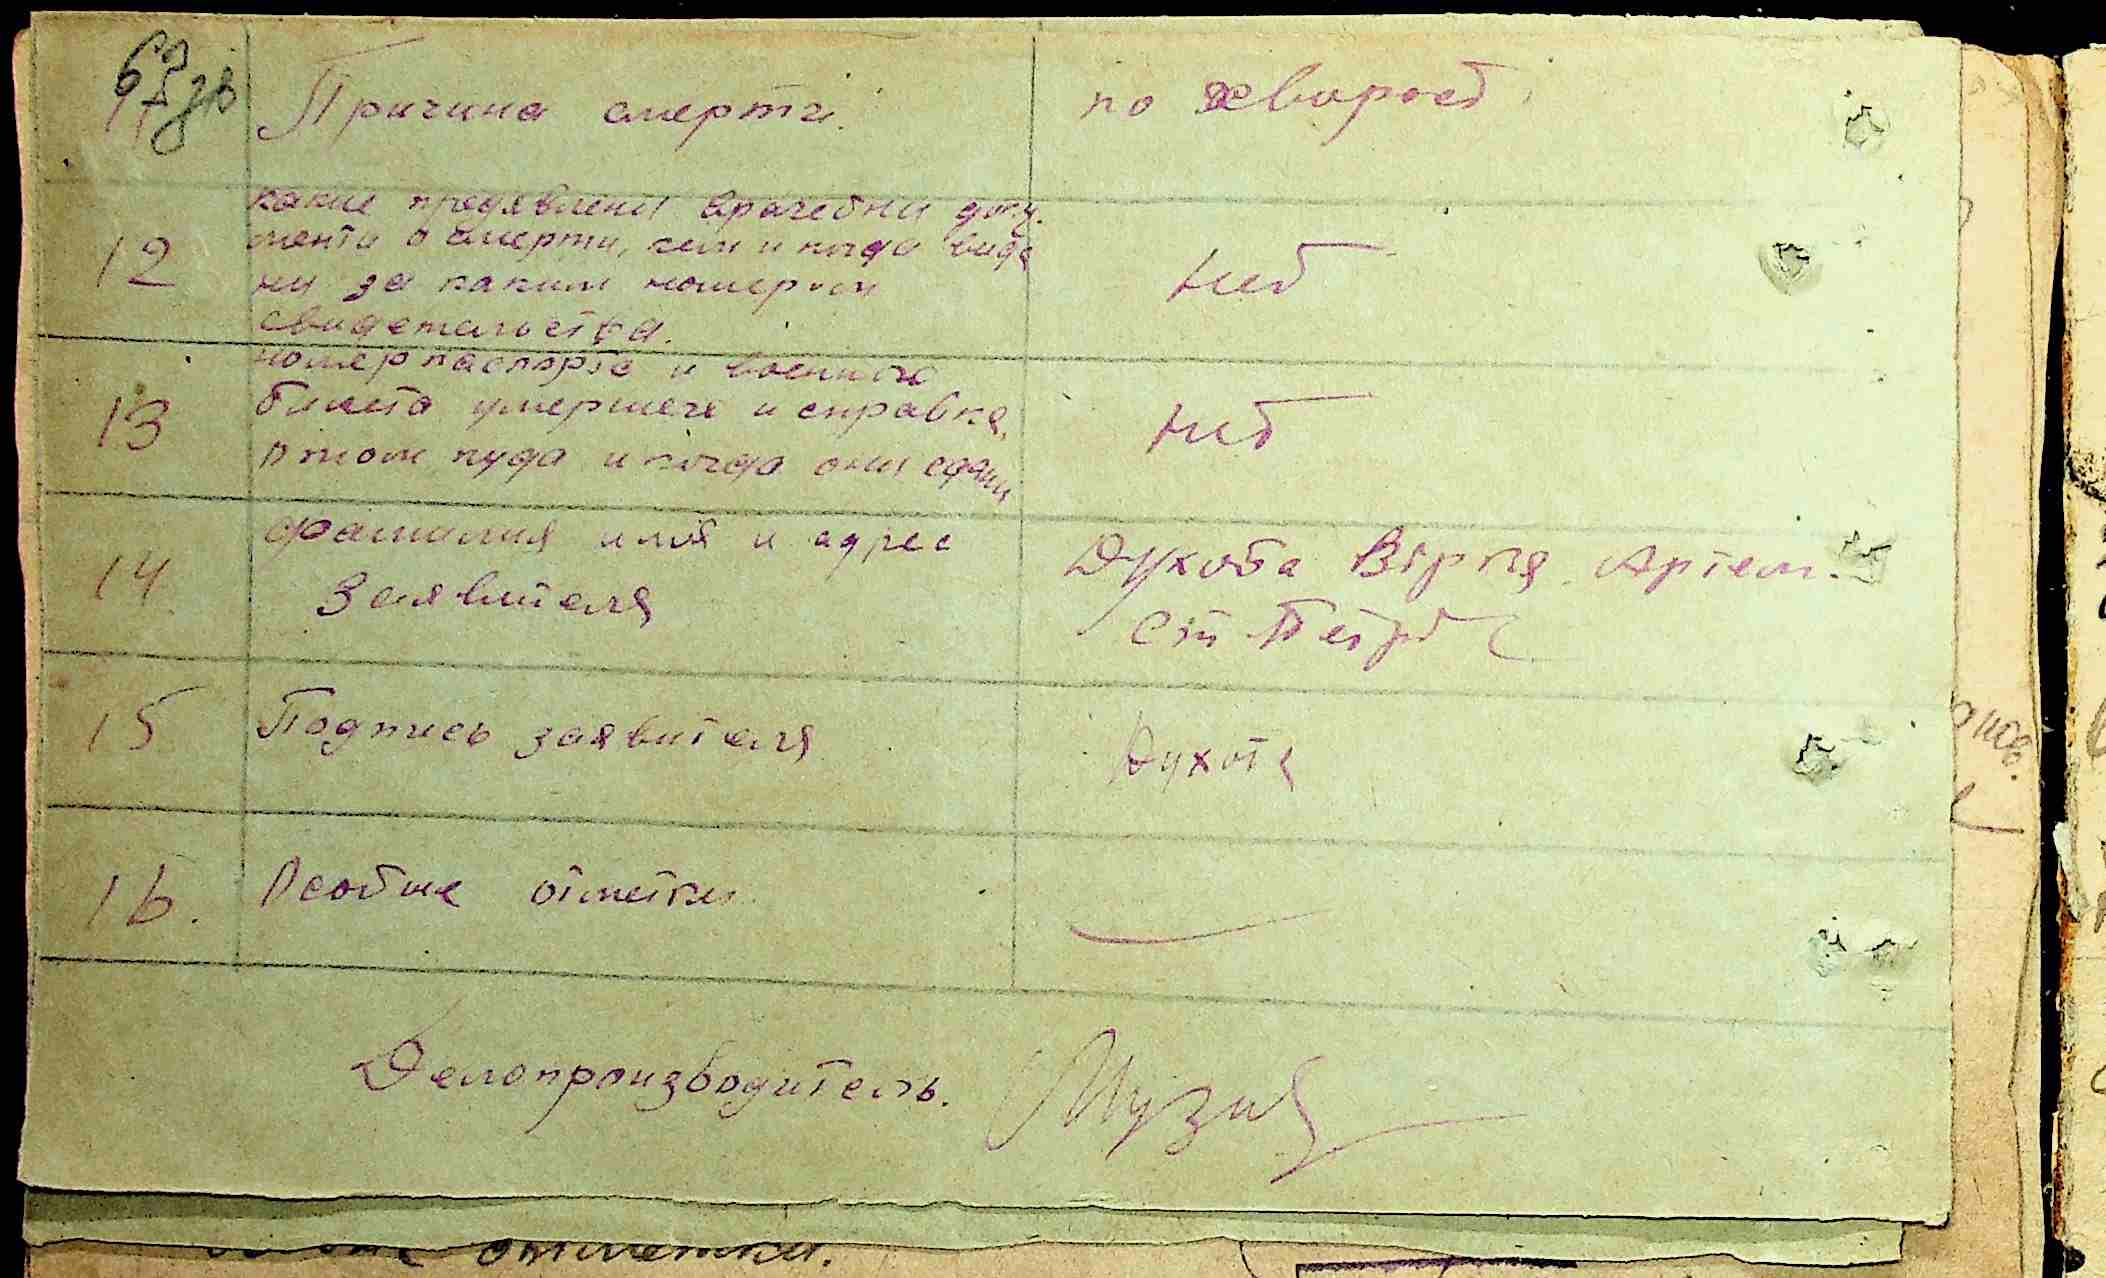 67 зв
11 Причина смерти. по хворост
12 какие предявлени врачебни доку-
менти о смерти, кем и когда вида
ни за каким номером
свидетельства.
Нет
13 номер паспорта и военного
билета умершего и справка,
о том куда и когда они сдани
Нет
14 фамилия имя и адрес
заявителя
Духота Артем.
ст
15 Подпись заявителя Духота
16. Особие отметки
Делопроизводитель.
отметки.